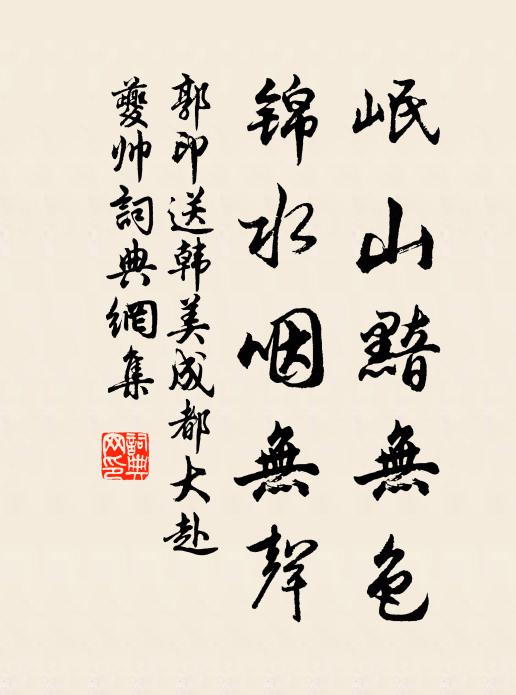 岷山黯無色
锦水咽無聲
郭印送韩美成都大赴
夔帅詞典網集
詞典网印